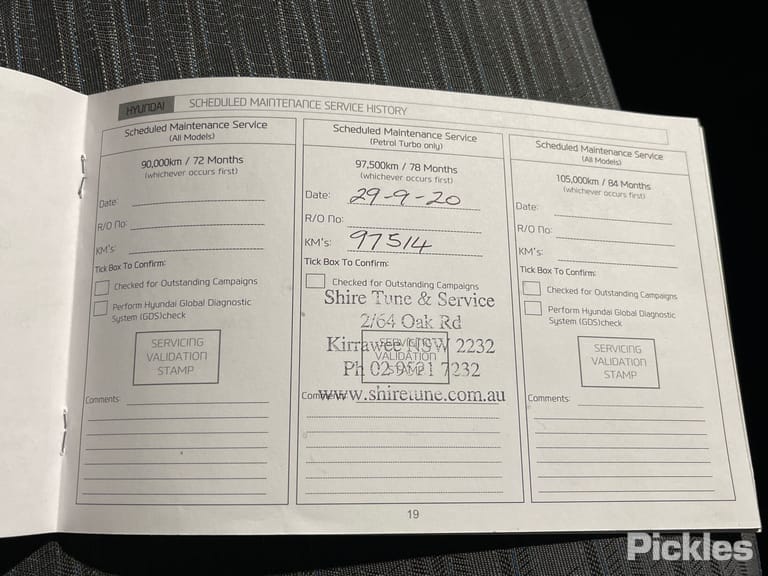 HYUNDAI SCHEDULED MAINTENANCE SERVICE HISTORY
Scheduled Maintenance Service
(All Models)
90,000km / 72 Months
(whichever occurs first)
Date:
R/O No:
KM's:
Tick Box To Confirm:
Checked for Outstanding Campaigns
Perform Hyundai Global Diagnostic
System (GDS)check
SERVICING
VALIDATION
STAMP
Comments:
Scheduled Maintenance Service
(Petrol Turbo only)
97,500km / 78 Months
(whichever occurs first)
Date: 29-9-20
R/O No:
KM's: 97514
Tick Box To Confirm:
Checked for Outstanding Campaigns
Shire Tune & Service
2/64 Oak Rd
Kirrawee NSW 2232
Ph 02 9521 7232
www.shiretune.com.au
SERVICING
VALIDATION
STAMP
Comments:
Scheduled Maintenance Service
(All Models)
105,000km / 84 Months
(whichever occurs first)
Date:
R/O No:
KM's:
Tick Box To Confirm:
Checked for Outstanding Campaigns
Perform Hyundai Global Diagnostic
System (GDS)check
SERVICING
VALIDATION
STAMP
Comments:
19
Pickles